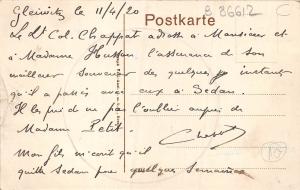 Gleiwitz le 11/4/20
Postkarte
B 86612
C
Le Lt Col. Chappat adresse à Monsieur et
à Madame Husson l'assurance de son
meilleur souvenir des quelques instants
qu'il a passés avec eux à Sedan.
Il les prie de ne pas l'oublier auprès de
Madame Petit.
Mon fils m'écrit qu'il
quitte Sedan pour quelques semaines